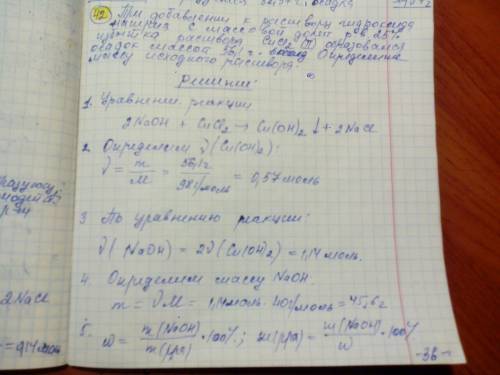 42
При добавлении к раствору гидроксида
натрия с массовой долей р-ра 25%
избытка раствора CuCl₂ (II) образовался
осадок массой 56,1 г. Определите
массу исходного раствора.
Решение:
1. Уравнение реакции
2NaOH + CuCl₂ → Cu(OH)₂ ↓ + 2NaCl
2. Определяем ν(Cu(OH)₂):
ν = m/M = 56,1г/98г/моль = 0,57 моль
3 По уравнению реакции:
ν(NaOH) = 2ν(Cu(OH)₂) = 1,14 моль.
4. Определяем массу NaOH.
m = ν M = 1,14моль · 40г/моль = 45,6 г
5. ω = m(NaOH)/m(р-ра) · 100%; m(р-ра) = m(NaOH)/ω · 100%
-36-
2NaCl
= 0,14 моль